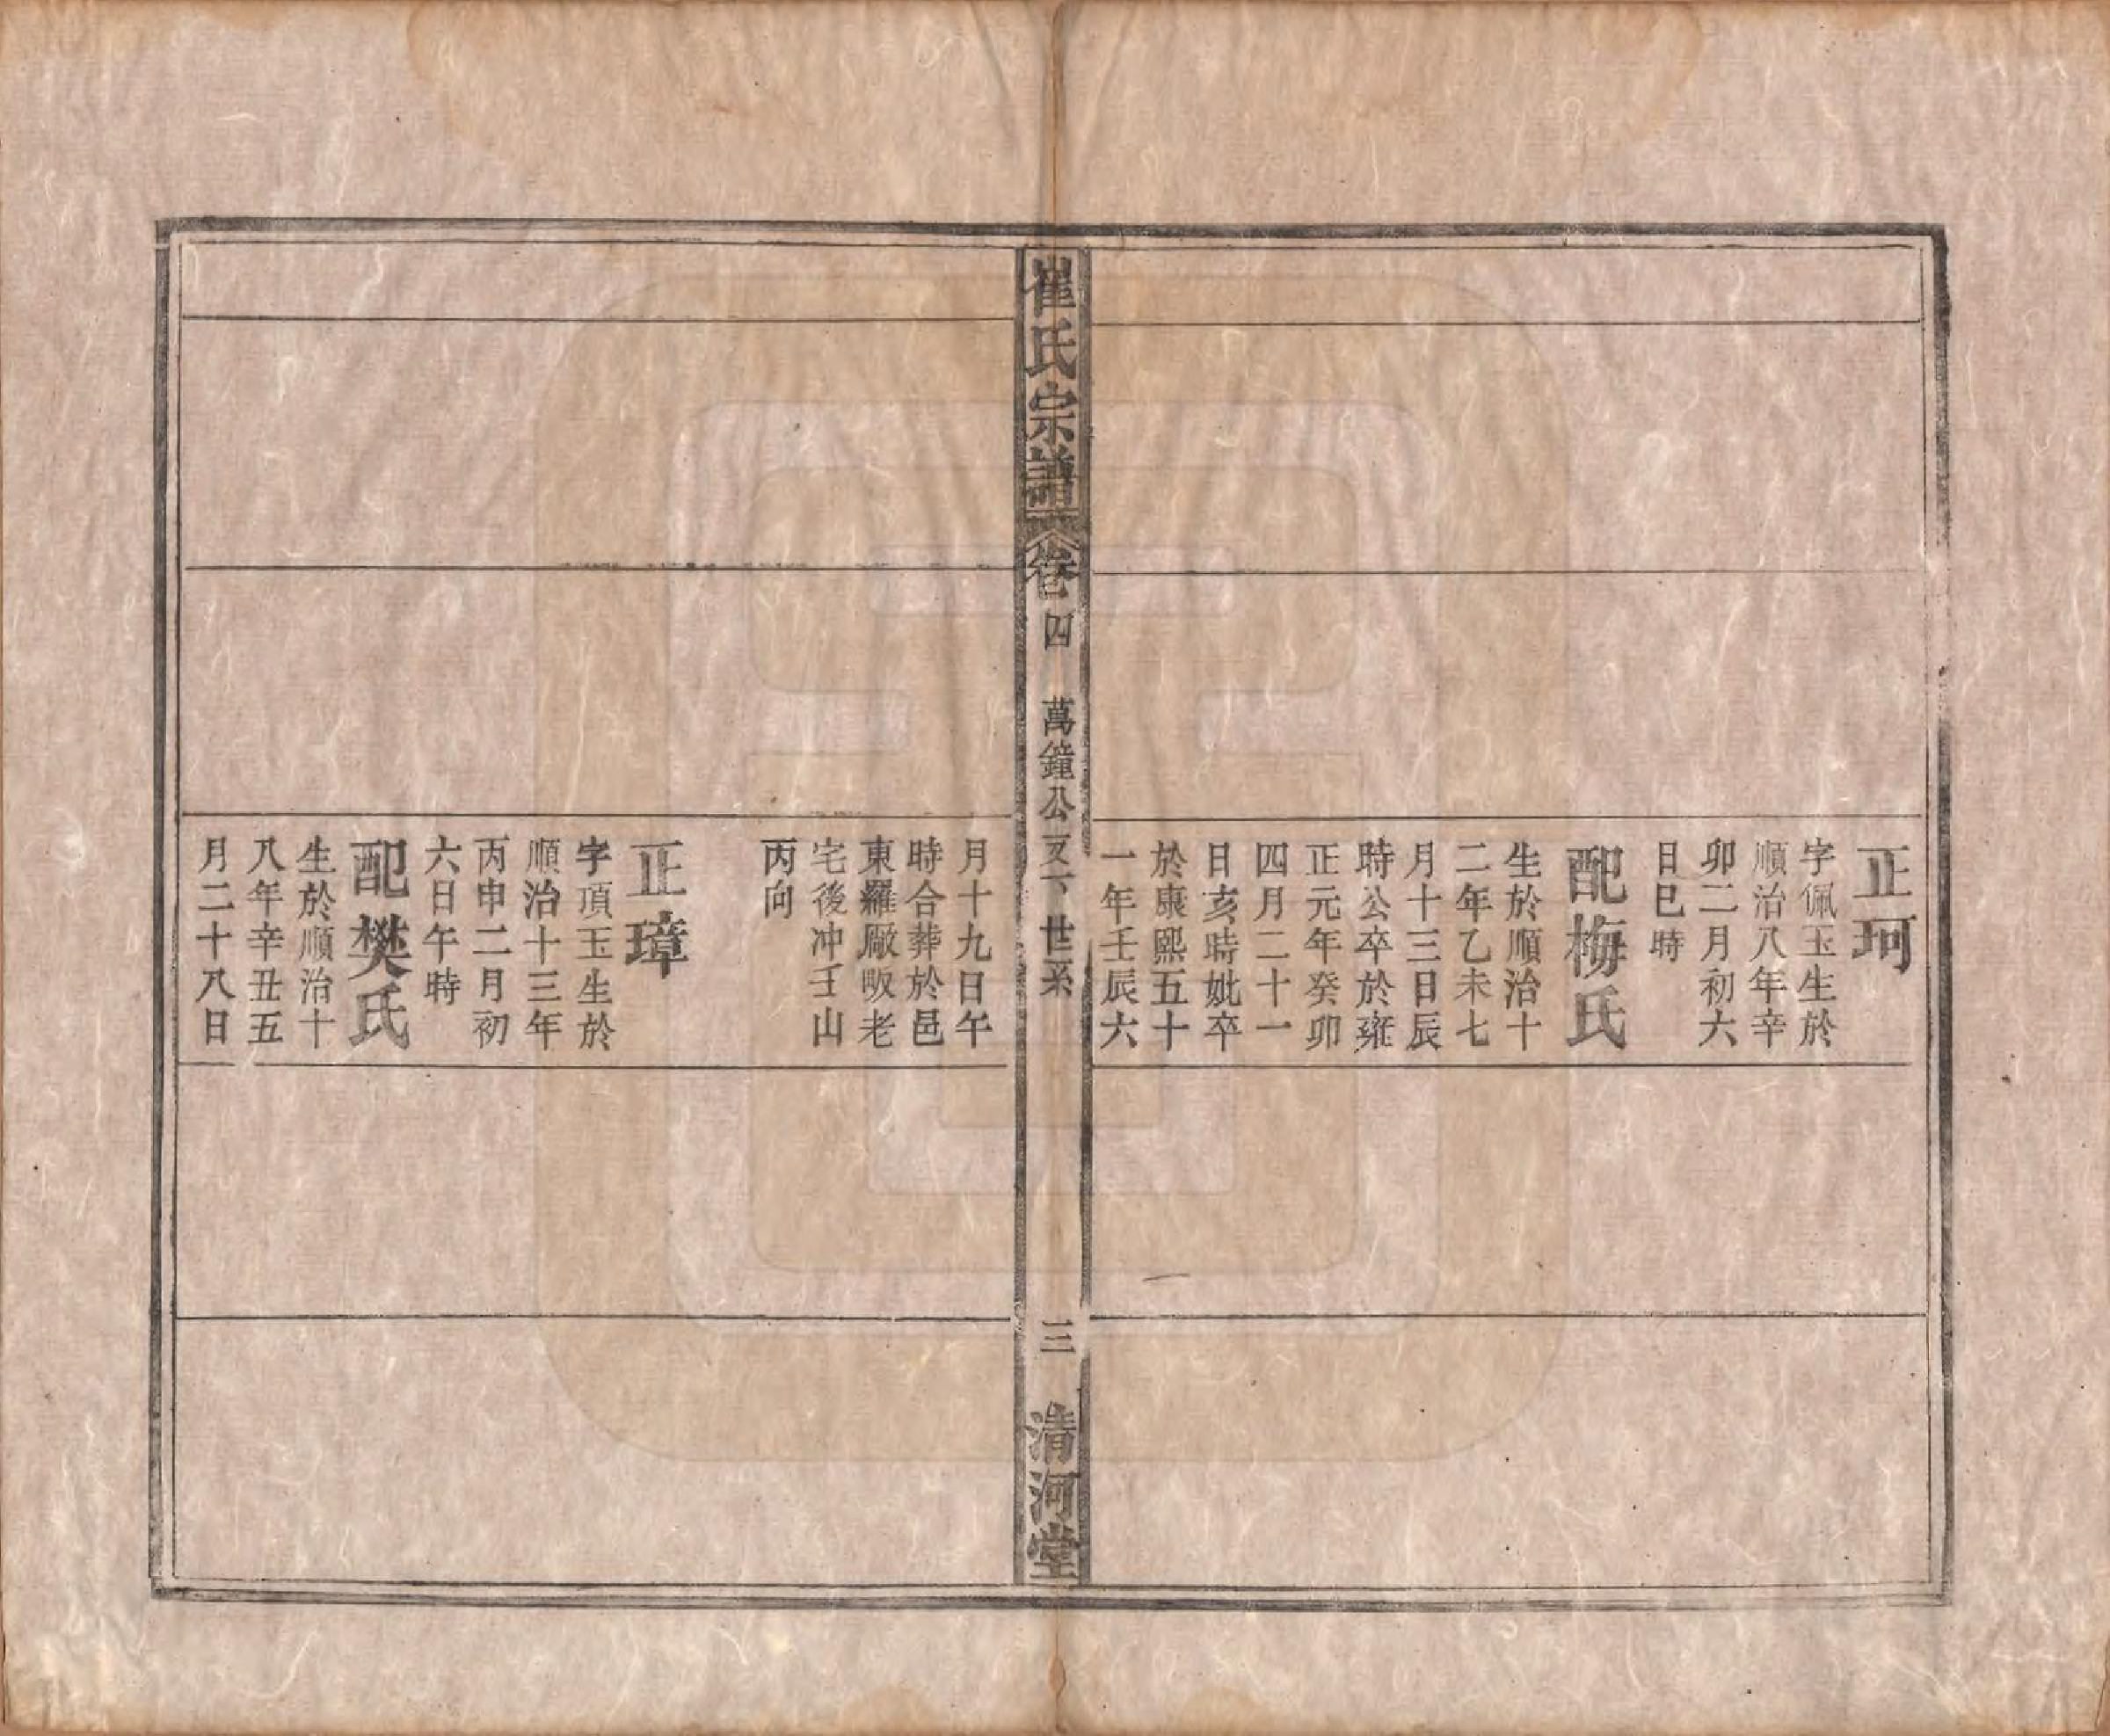 正珂
字佩玉生於
順治八年辛
卯二月初六
日巳時
配梅氏
生於順治十
二年乙未七
月十三日辰
時公卒於雍
正元年癸卯
四月二十一
日亥時妣卒
於康熙五十
一年壬辰六
崔氏宗譜
卷四
萬鐘公
世系
三
清河堂
月十九日午
時合葬於邑
東羅廠畈老
宅後冲壬山
丙向
正璋
字頊玉生於
順治十三年
丙申二月初
六日午時
配樊氏
生於順治十
八年辛丑五
月二十八日